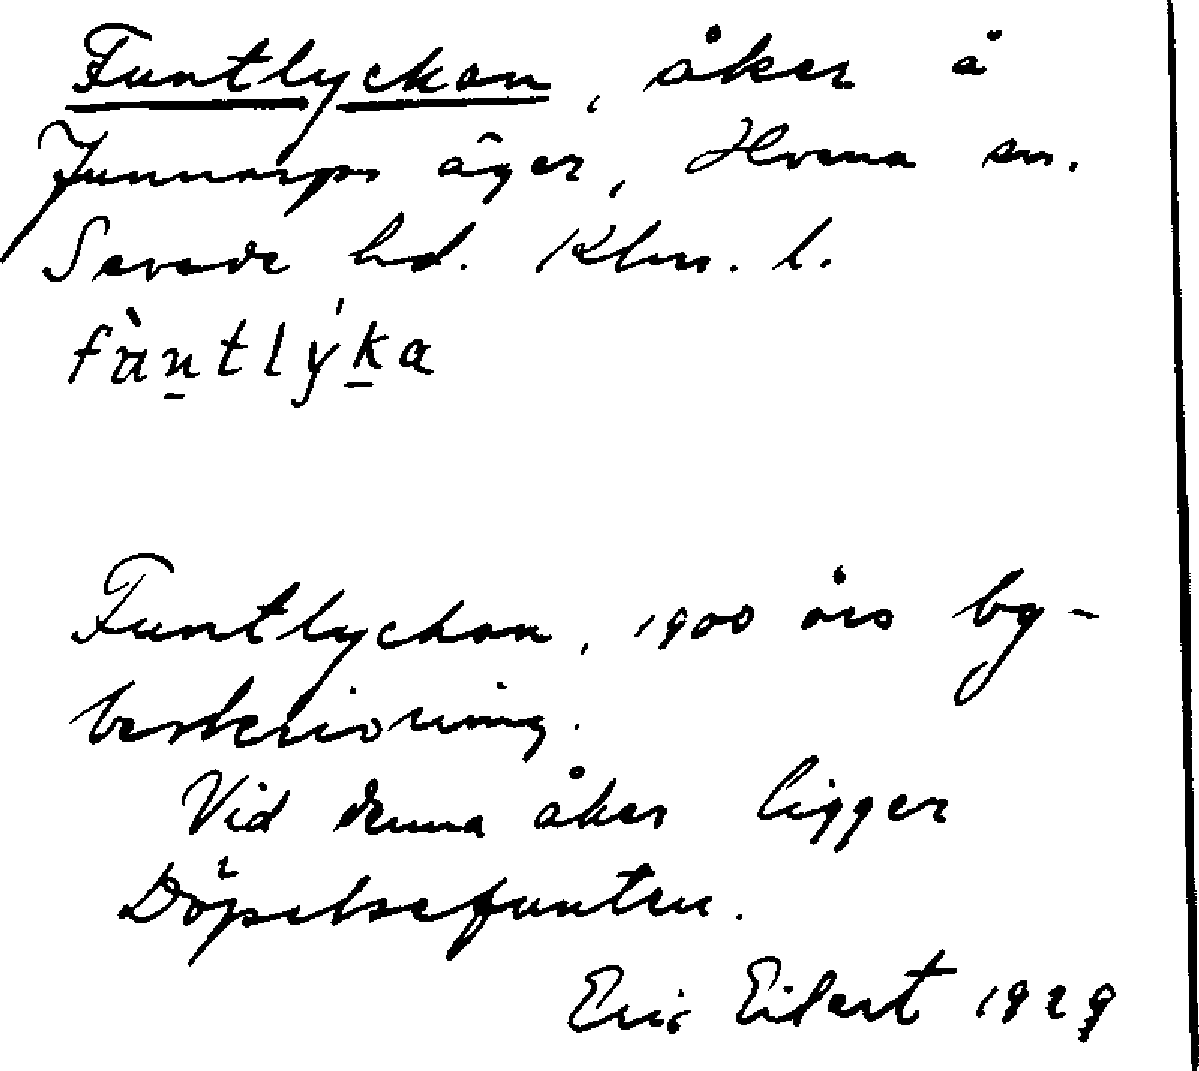 Funtlyckan, åker å
Junnarps äger, Hvena sn.
Sevede hd. Klm. l.
fùntlýka
Funtlyckan, 1900 års by-
beskrivning.
Vid denna åker ligger
Döpelsefunten.
Eric Eilert 1929